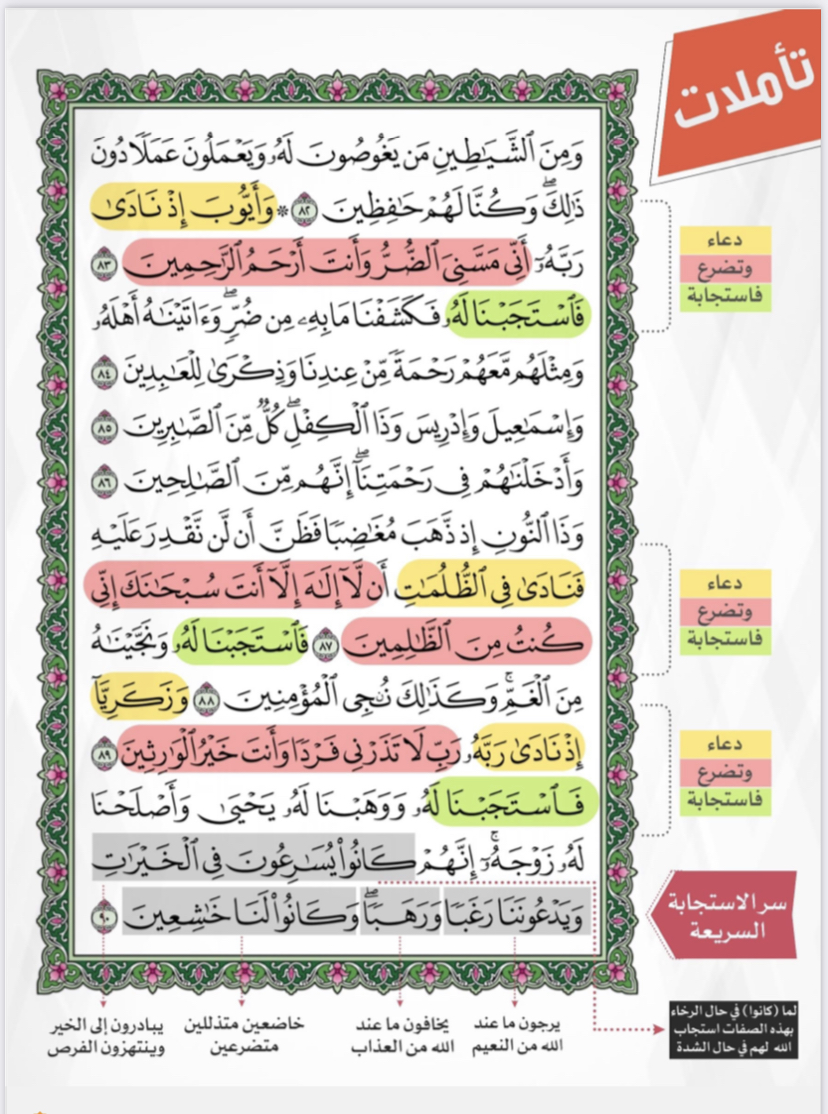 تأملات
وَمِنَ ٱلشَّيَـٰطِينِ مَن يَغُوصُونَ لَهُۥ وَيَعْمَلُونَ عَمَلًا دُونَ
ذَٰلِكَ ۖ وَكُنَّا لَهُمْ حَـٰفِظِينَ ٨٢ ۞ وَأَيُّوبَ إِذْ نَادَىٰ
رَبَّهُۥٓ أَنِّى مَسَّنِىَ ٱلضُّرُّ وَأَنتَ أَرْحَمُ ٱلرَّٰحِمِينَ ٨٣
فَٱسْتَجَبْنَا لَهُۥ فَكَشَفْنَا مَا بِهِۦ مِن ضُرٍّ ۖ وَءَاتَيْنَـٰهُ أَهْلَهُۥ
وَمِثْلَهُم مَّعَهُمْ رَحْمَةً مِّنْ عِندِنَا وَذِكْرَىٰ لِلْعَـٰبِدِينَ ٨٤
وَإِسْمَـٰعِيلَ وَإِدْرِيسَ وَذَا ٱلْكِفْلِ ۖ كُلٌّ مِّنَ ٱلصَّـٰبِرِينَ ٨٥
وَأَدْخَلْنَـٰهُمْ فِى رَحْمَتِنَآ ۖ إِنَّهُم مِّنَ ٱلصَّـٰلِحِينَ ٨٦
وَذَا ٱلنُّونِ إِذ ذَّهَبَ مُغَـٰضِبًا فَظَنَّ أَن لَّن نَّقْدِرَ عَلَيْهِ
فَنَادَىٰ فِى ٱلظُّلُمَـٰتِ أَن لَّآ إِلَـٰهَ إِلَّآ أَنتَ سُبْحَـٰنَكَ إِنِّى
كُنتُ مِنَ ٱلظَّـٰلِمِينَ ٨٧ فَٱسْتَجَبْنَا لَهُۥ وَنَجَّيْنَـٰهُ
مِنَ ٱلْغَمِّ ۚ وَكَذَٰلِكَ نُـۨجِى ٱلْمُؤْمِنِينَ ٨٨ وَزَكَرِيَّآ
إِذْ نَادَىٰ رَبَّهُۥ رَبِّ لَا تَذَرْنِى فَرْدًا وَأَنتَ خَيْرُ ٱلْوَٰرِثِينَ ٨٩
فَٱسْتَجَبْنَا لَهُۥ وَوَهَبْنَا لَهُۥ يَحْيَىٰ وَأَصْلَحْنَا
لَهُۥ زَوْجَهُۥٓ ۚ إِنَّهُمْ كَانُوا۟ يُسَـٰرِعُونَ فِى ٱلْخَيْرَٰتِ
وَيَدْعُونَنَا رَغَبًا وَرَهَبًا ۖ وَكَانُوا۟ لَنَا خَـٰشِعِينَ ٩٠
دعاء
وتضرع
فاستجابة
دعاء
وتضرع
فاستجابة
دعاء
وتضرع
فاستجابة
سر الاستجابة
السريعة
لما (كانوا) في حال الرخاء
بهذه الصفات استجاب
الله لهم في حال الشدة
يرجون ما عند
الله من النعيم
يخافون ما عند
الله من العذاب
خاضعين متذللين
متضرعين
يبادرون إلى الخير
وينتهزون الفرص